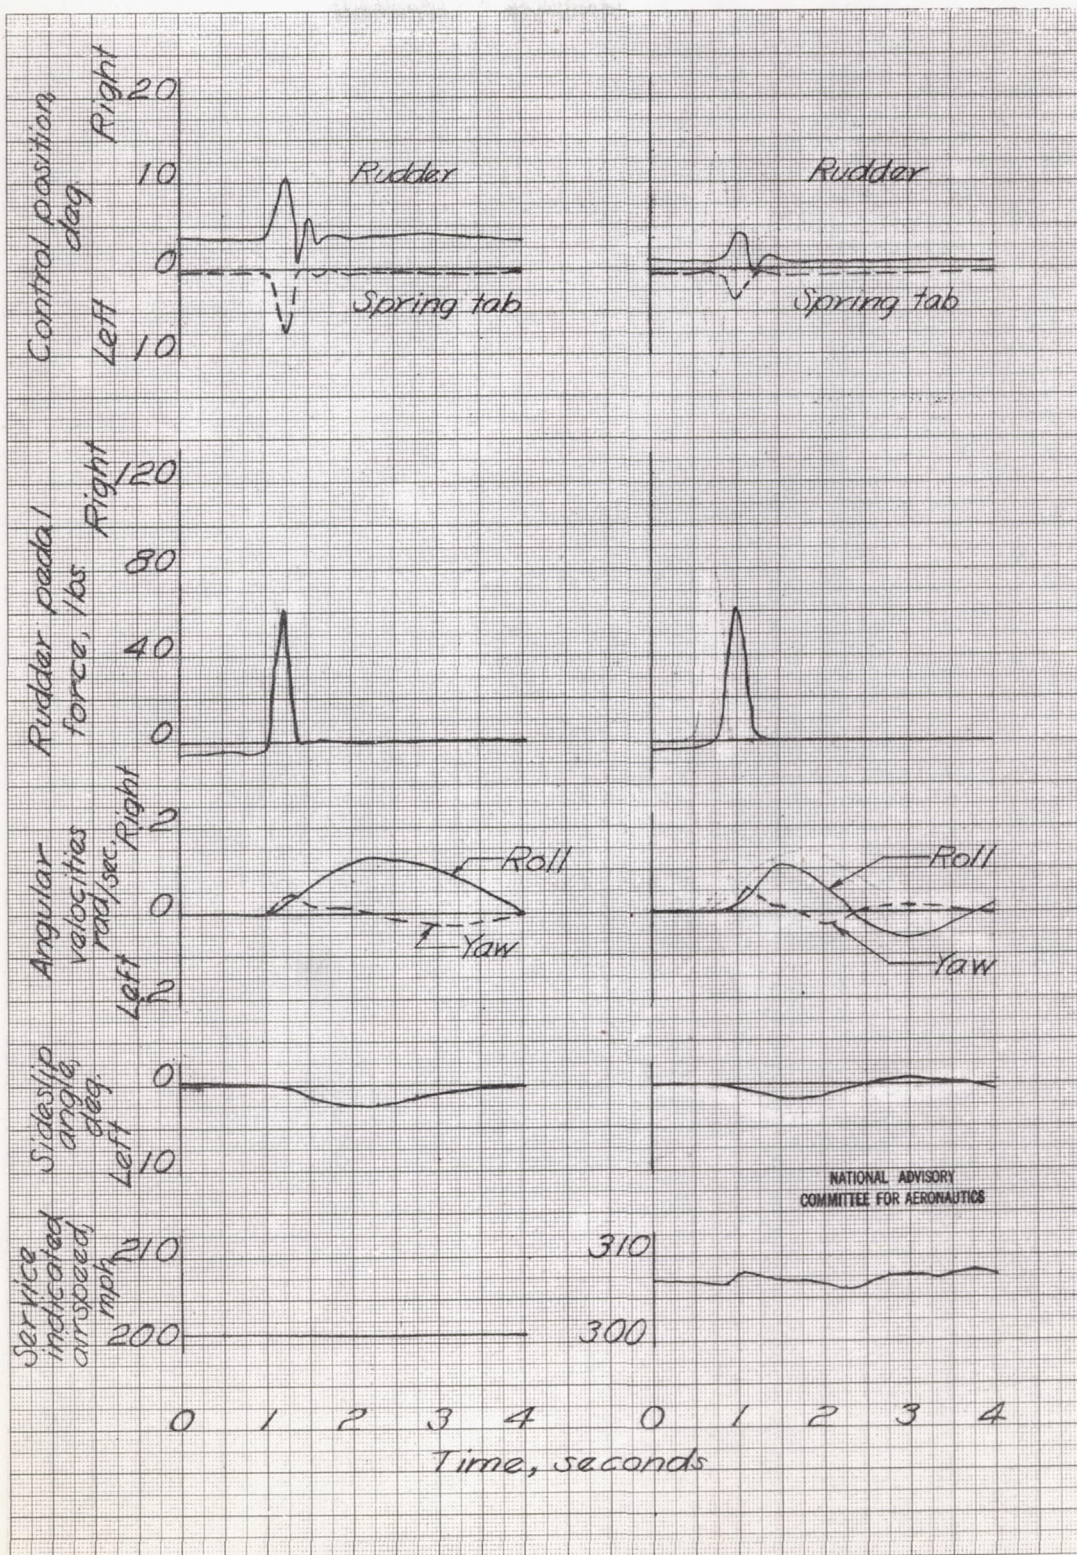 Control position, deg.
Left Right
20
10
0
10
Rudder
Spring tab
Rudder
Spring tab
Rudder pedal force, lbs
Right
120
80
40
0
Angular velocities rad/sec.
Left Right
.2
0
.2
Roll
Yaw
Roll
Yaw
Sideslip angle, deg.
Left
0
10
NATIONAL ADVISORY
COMMITTEE FOR AERONAUTICS
Service indicated airspeed, mph
210
200
310
300
0 1 2 3 4
0 1 2 3 4
Time, seconds